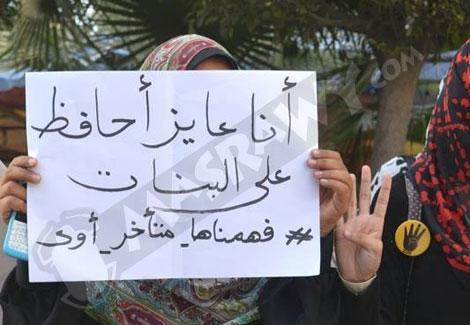 أنا عايز أحافظ
على البنات
# فهمناها_متأخر_أوى
MASRAWY.COM